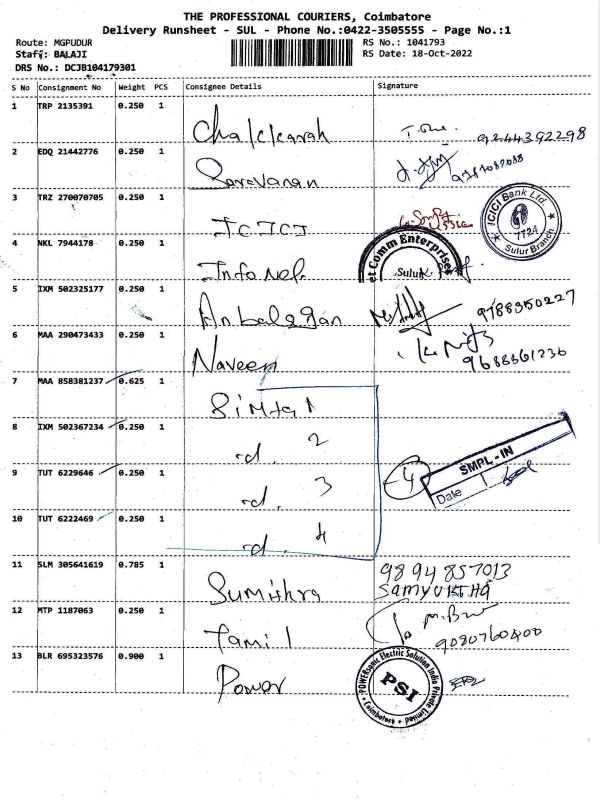 THE PROFESSIONAL COURIERS, Coimbatore
Delivery Runsheet - SUL - Phone No.:0422-3505555 - Page No.:1
Route: MGPUDUR
RS No.: 1041793
Staff: BALAJI
RS Date: 18-Oct-2022
DRS No.: DCJB104179301
S No Consignment No Weight PCS Consignee Details Signature
1 TRP 2135391 0.250 1
9244392298
2 EDQ 21442776 0.250 1 Saravanan
3 TRZ 270070705 0.250 1 ICICI
ICICI Bank Ltd. 7724 Sulur Branch
4 NKL 7944178 0.250 1 Info Net
et Comm Enterprises Sulur
5 IXM 502325177 0.250 1 Anbalagan
9788350227
6 MAA 290473433 0.250 1 Naveen
9688861236
7 MAA 858381237 0.625 1 Simtal 1
8 IXM 502367234 0.250 1 rd. 2
SMPL-IN
Date
9 TUT 6229646 0.250 1 rd. 3 4
10 TUT 6222469 0.250 1 rd. 4
11 SLM 305641619 0.785 1 Sumithra 9894857013
SAMYUKTHA
12 MTP 1187063 0.250 1 Tamil
9080760400
13 BLR 695323576 0.900 1 Power
POWERsonic Electric Solution India Private Limited PSI Coimbatore